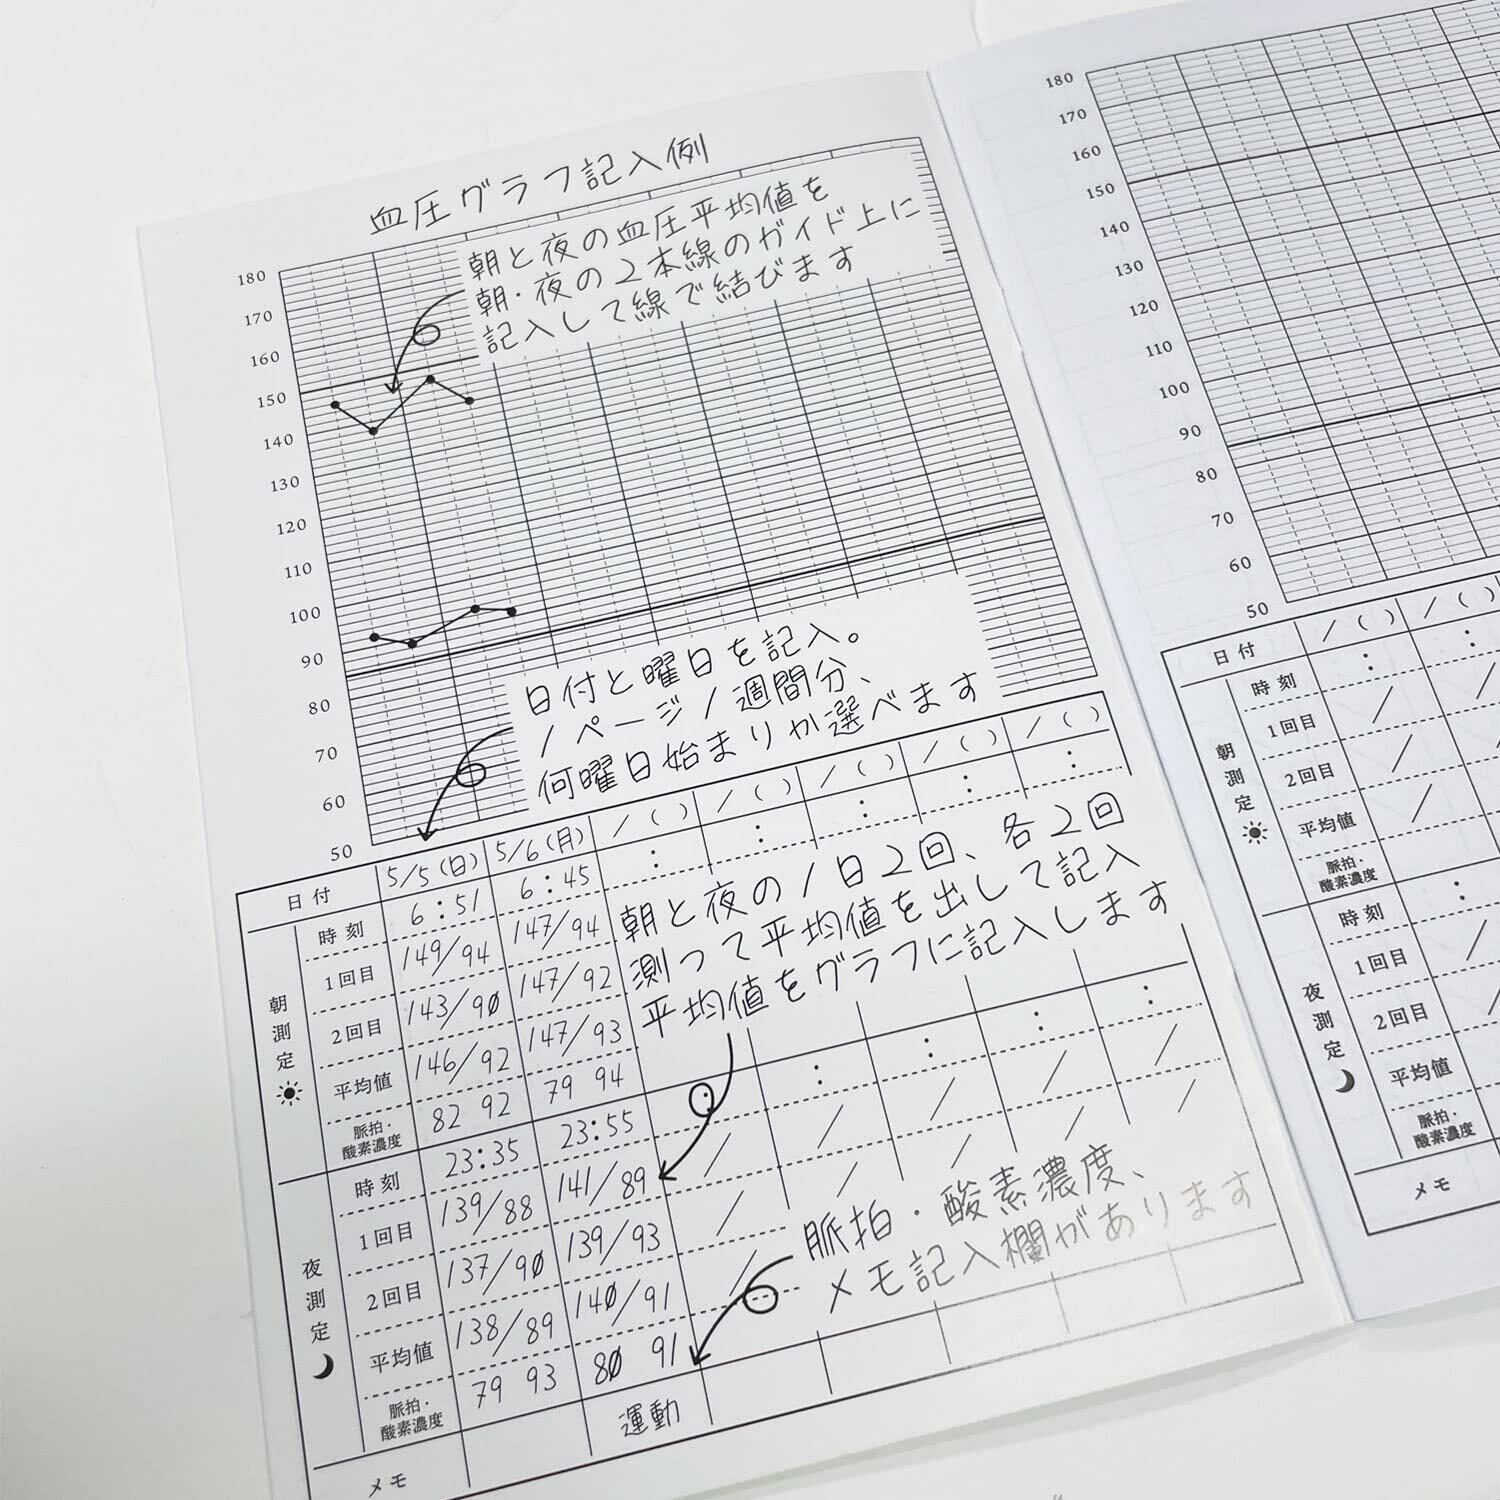 血圧グラフ記入例
朝と夜の血圧平均値を
朝・夜の2本線のガイド上に
記入して線で結びます
180
170
160
150
140
130
120
110
100
90
80
70
60
50
日付と曜日を記入。
1ページ1週間分、
何曜日始まりか選べます
日付 5/5(日) 5/6(月) /( ) /( ) /( ) /( ) /( )
朝測定
時刻 6:51 6:45 : : : : :
1回目 149/94 147/94
2回目 143/90 147/92
平均値 146/92 147/93
脈拍・酸素濃度 82 92 79 94
朝と夜の1日2回、各2回
測って平均値を出して記入
平均値をグラフに記入します
夜測定
時刻 23:35 23:55 : : : : :
1回目 139/88 141/89 / / / / /
2回目 137/90 139/93 / / / / /
平均値 138/89 140/91 /
脈拍・酸素濃度 79 93 80 91
脈拍・酸素濃度、
メモ記入欄があります
メモ 運動
180
170
160
150
140
130
120
110
100
90
80
70
60
50
日付 /( ) /( )
朝測定
時刻 : :
1回目 / /
2回目 / /
平均値 /
脈拍・
酸素濃度
夜測定
時刻 :
1回目 /
2回目 /
平均値
脈拍・
酸素濃度
メモ